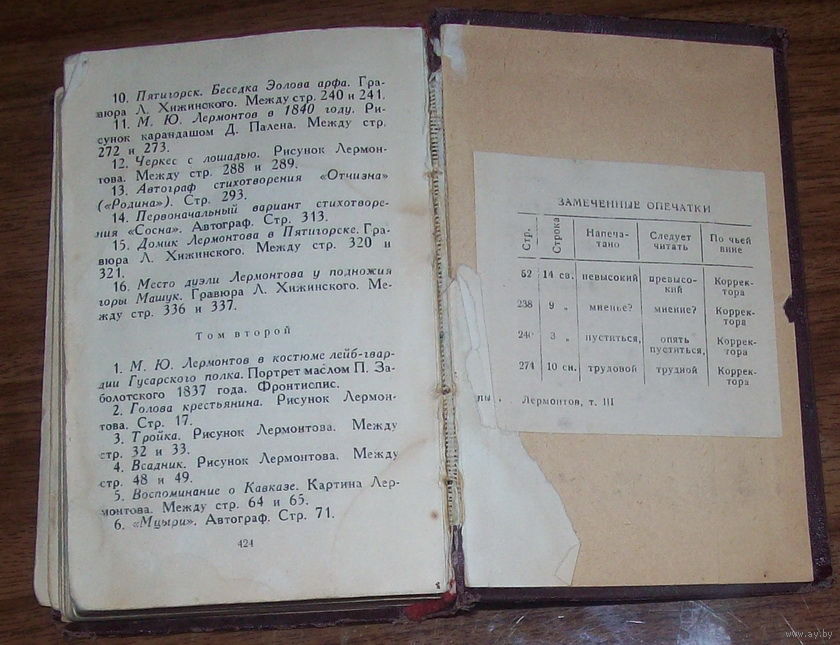 10. Пятигорск. Беседка Эолова арфа. Гра-
вюра Л. Хижинского. Между стр. 240 и 241.
11. М. Ю. Лермонтов в 1840 году. Ри-
сунок карандашом Д. Палена. Между стр.
272 и 273.
12. Черкес с лошадью. Рисунок Лермон-
това. Между стр. 288 и 289.
13. Автограф стихотворения «Отчизна»
(«Родина»). Стр. 293.
14. Первоначальный вариант стихотворе-
ния «Сосна». Автограф. Стр. 313.
15. Домик Лермонтова в Пятигорске. Гра-
вюра Л. Хижинского. Между стр. 320 и
321.
16. Место дуэли Лермонтова у подножия
горы Машук. Гравюра Л. Хижинского. Ме-
жду стр. 336 и 337.
Том второй
1. М. Ю. Лермонтов в костюме лейб-гвар-
дии Гусарского полка. Портрет маслом П. За-
болотского 1837 года. Фронтиспис.
2. Голова крестьянина. Рисунок Лермон-
това. Стр. 17.
3. Тройка. Рисунок Лермонтова. Между
стр. 32 и 33.
4. Всадник. Рисунок Лермонтова. Между
стр. 48 и 49.
5. Воспоминание о Кавказе. Картина Лер-
монтова. Между стр. 64 и 65.
6. «Мцыри». Автограф. Стр. 71.
424
ЗАМЕЧЕННЫЕ ОПЕЧАТКИ
Стр. Строка Напеча- Следует По чьей
тано читать вине
52 14 св. невысокий превысо- Коррек-
кий тора
238 9 „ мненье? мнение? Коррек-
тора
240 3 „ пуститься, опять Коррек-
пуститься, тора
274 10 сн. трудовой трудной Коррек-
тора
Лермонтов, т. III
www.ay.by